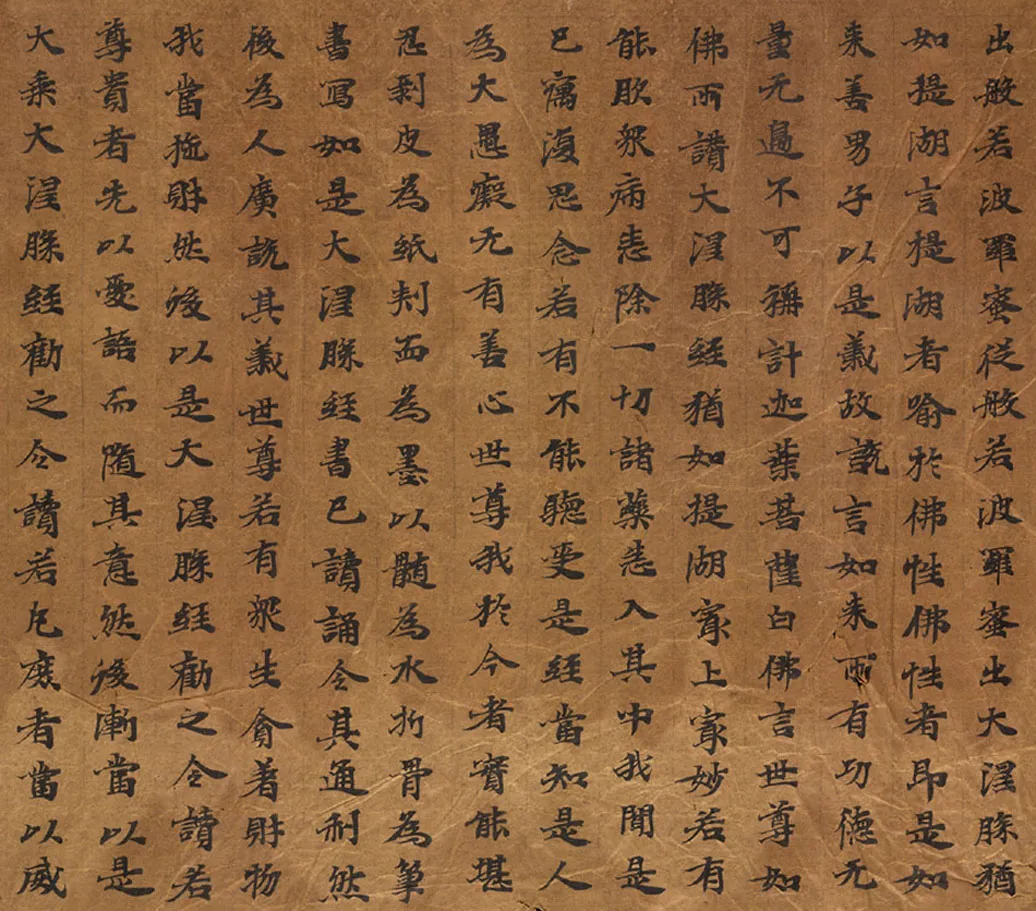 出般若波羅蜜從般若波羅蜜出大涅縣猶
如提湖言提湖者喻於佛性佛性者即是如
来善男子以是義故説言如来所有功德无
量无邊不可稱計迦葉菩薩白佛言世尊如
佛所讚大涅縣經猶如提湖冣上冣妙若有
能飲衆病悉除一切諸藥悉入其中我聞是
已竊復思念若有不能聽受是經當知是人
為大愚癡无有善心世尊我於今者實能堪
忍剥皮為紙刾血為墨以髓為水折骨為筆
書寫如是大涅縣經書已讀誦令其通利然
後為人廣説其義世尊若有衆生貪著財物
我當施財然後以是大涅縣經勸之令讀若
尊貴者先以愛語而隨其意然後漸當以是
大乘大涅縣經勸之令讀若凡庶者當以威